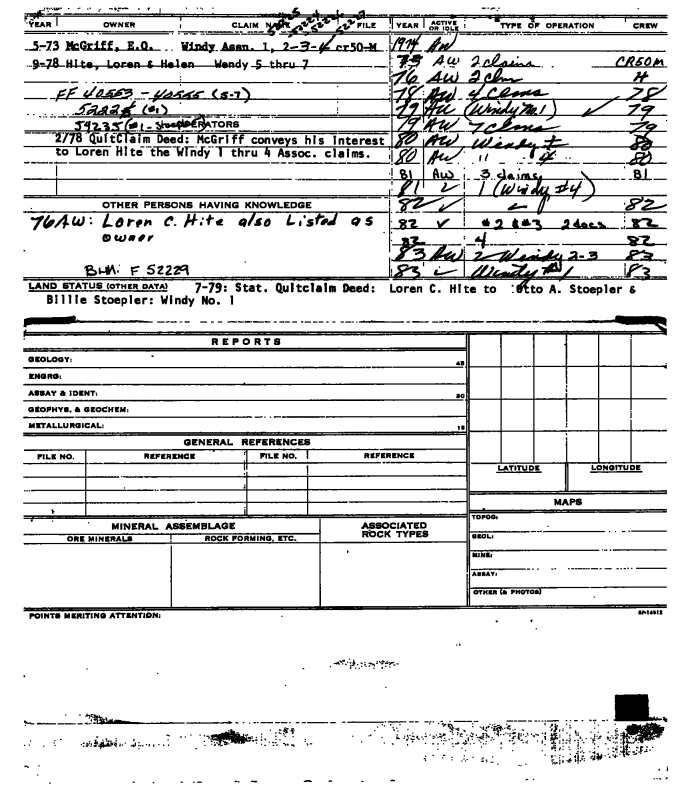 YEAR OWNER CLAIM FILE YEAR ACTIVE OR IDLE TYPE OF OPERATION CREW
5-73 McGriff, E.O. Windy Assn. 1, 2-3-4 cr50-M 1974 AW
9-78 Hite, Loren & Helen Windy 5 thru 7 75 AW 2 claims CR50M
76 AW 2 clm H
FF 40553 - 40555 (5-7) 78 AW 4 Clms 78
(#1) 79 AW (Windy No. 1) ✓ 79
54235 (#1 - Stoepler) OPERATORS 79 AW 7 clms 79
2/78 QuitClaim Deed: McGriff conveys his interest 80 AW Windy 80
to Loren Hite the Windy 1 thru 4 Assoc. claims. 80 AW " 4 80
81 AW 3 claims 81
81 ✓ 1 (Windy #4)
OTHER PERSONS HAVING KNOWLEDGE 82 ✓ 82
76AW: Loren C. Hite also Listed as 82 ✓ #2 & #3 2 docs 82
owner 82 4 82
83 AW 2 Windy 2-3 83
BLM: F 52229 83 ✓ Windy #1 83
LAND STATUS (OTHER DATA) 7-79: Stat. Quitclaim Deed: Loren C. Hite to Otto A. Stoepler &
Billie Stoepler: Windy No. 1
REPORTS
GEOLOGY: 45
ENGRG:
ASSAY & IDENT: 30
GEOPHYS. & GEOCHEM:
METALLURGICAL: 15
GENERAL REFERENCES
FILE NO. REFERENCE FILE NO. REFERENCE
LATITUDE LONGITUDE
MAPS
MINERAL ASSEMBLAGE ASSOCIATED ROCK TYPES
ORE MINERALS ROCK FORMING, ETC.
TOPOG:
GEOL:
MINE:
ASSAY:
OTHER (& PHOTOS)
POINTS MERITING ATTENTION: